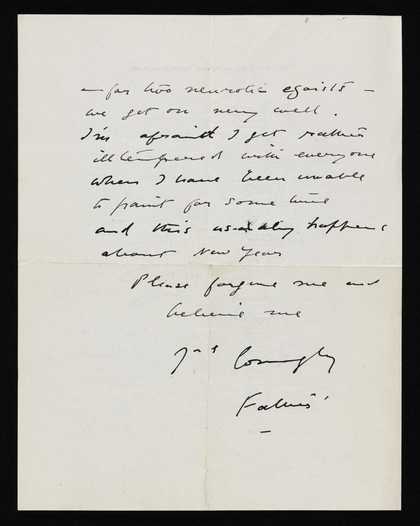 — for two neurotic egoists —
we get on very well.
I'm afraid I get rather
illtempered with everyone
when I have been unable
to paint for some time
and this usually happens
about New Year
Please forgive me and
believe me